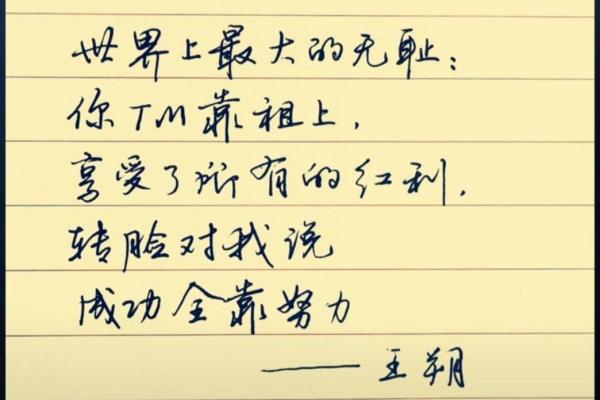 世界上最大的无耻:
你TM靠祖上,
享受了所有的红利,
转脸对我说
成功全靠努力
——王朔